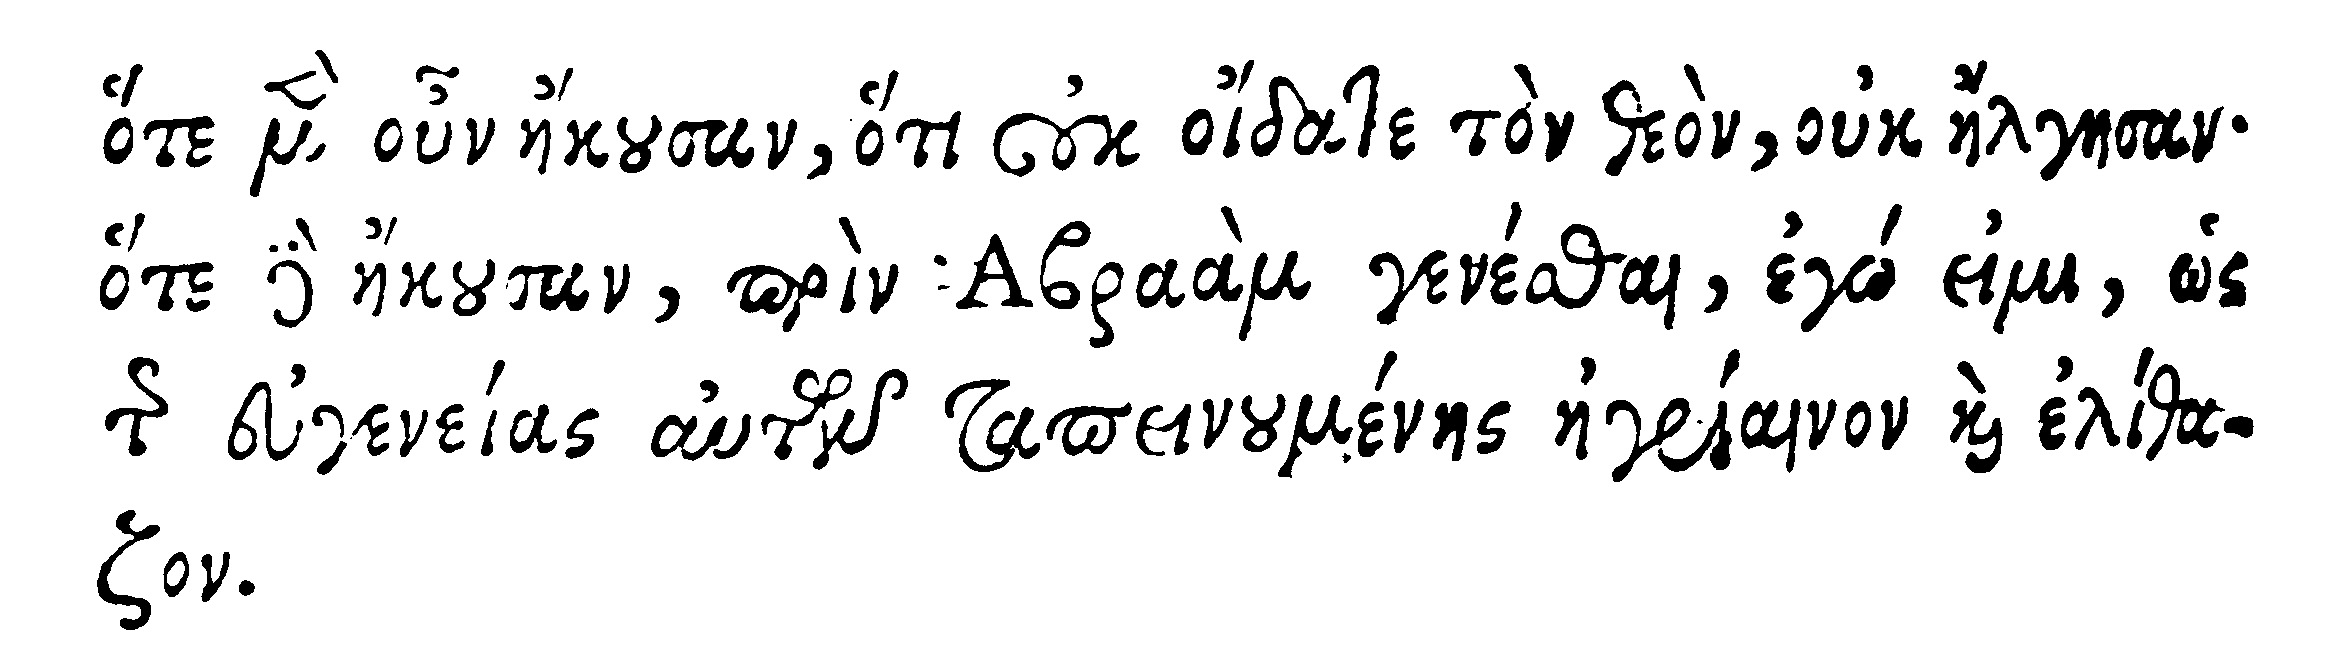 ὅτε μὲν οὖν ἤκουσαν, ὅτι οὐκ οἴδατε τὸν θεὸν, οὐκ ἤλγησαν·
ὅτε δὲ ἤκουσαν, πρὶν Ἀβραὰμ γενέσθαι, ἐγώ εἰμι, ὡς
τῆς εὐγενείας αὐτῶν ταπεινουμένης ἠγρίαινον καὶ ἐλίθα-
ζον.